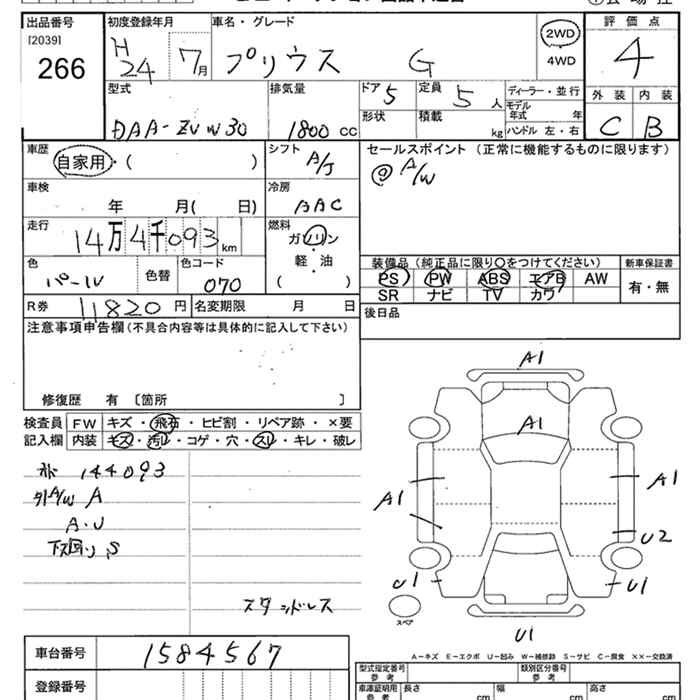 出品番号 初度登録年月 車名・グレード 2WD 評価点
[2039] H 24 7月 プリウス G 4WD 4
266
型式 排気量 ドア 5 定員 5人 ディーラー・並行 外装 内装
DAA-ZVW30 1800cc 形状 積載 kg モデル年式 年 C B
ハンドル 左・右
車歴 自家用・( ) シフト A/J セールスポイント (正常に機能するものに限ります)
@ A/W
車検 年 月( 日) 冷房 AAC
走行 14万4千093km 燃料 ガソリン
軽・油
( )
色 パール 色替 色コード 070
装備品 (純正品に限り○をつけてください) 新車保証書
PS PW ABS エアB AW 有・無
SR ナビ TV カワ
R券 11820円 名変期限 月 日
後日品
注意事項申告欄(不具合内容等は具体的に記入して下さい)
修復歴 有 〔箇所 〕
検査員 FW キズ・飛石・ヒビ割・リペア跡・×要
記入欄 内装 キズ・汚レ・コゲ・穴・スレ・キレ・破レ
144093
外A/W A
A・U
下廻り S
スタッドレス
A1
A1
A1
A1
U2
U1
U1
U1
スペア
A-キズ E-エクボ U-凹み W-補修跡 S-サビ C-腐食 ××-交換済
車台番号 1584567
登録番号
型式指定番号 参考 類別区分番号 参考
車庫証明用 参考 長さ cm 幅 cm 高さ cm